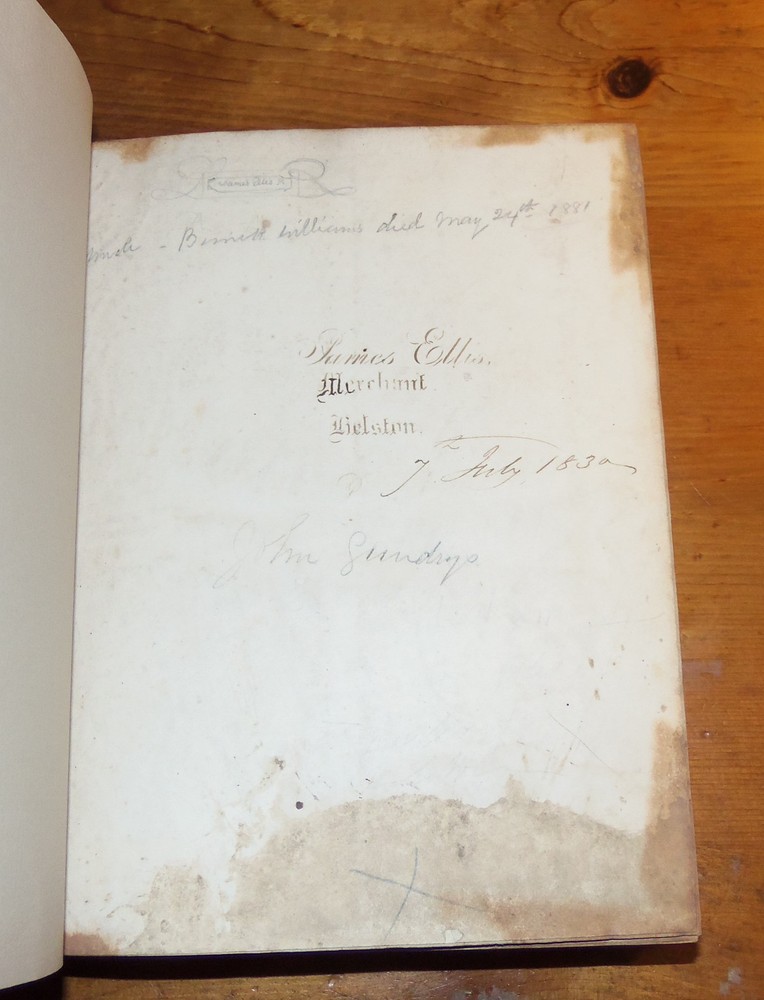 James Ellis
Williams died May 24th 1881
James Ellis.
Merchant.
Helston.
7th July 1830
John Gundrys